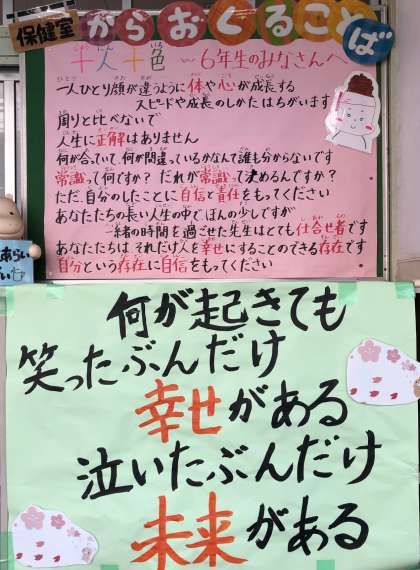 保健室からおくることば
十人十色 〜6年生のみなさんへ
一人ひとり顔が違うように体や心が成長する
スピードや成長のしかたはちがいます
周りと比べないで
人生に正解はありません
何が合っていて、何が間違っているかなんて誰も分からないです
常識って何ですか？だれが常識って決めるんですか？
ただ、自分のしたことに自信と責任をもってください
あなたたちの長い人生の中で、ほんの少しですが
一緒の時間を過ごせた先生はとても仕合せ者です
あなたたちは それだけ人を幸せにすることのできる存在です
自分という存在に自信をもってください
何が起きても
笑ったぶんだけ
幸せがある
泣いたぶんだけ
未来がある